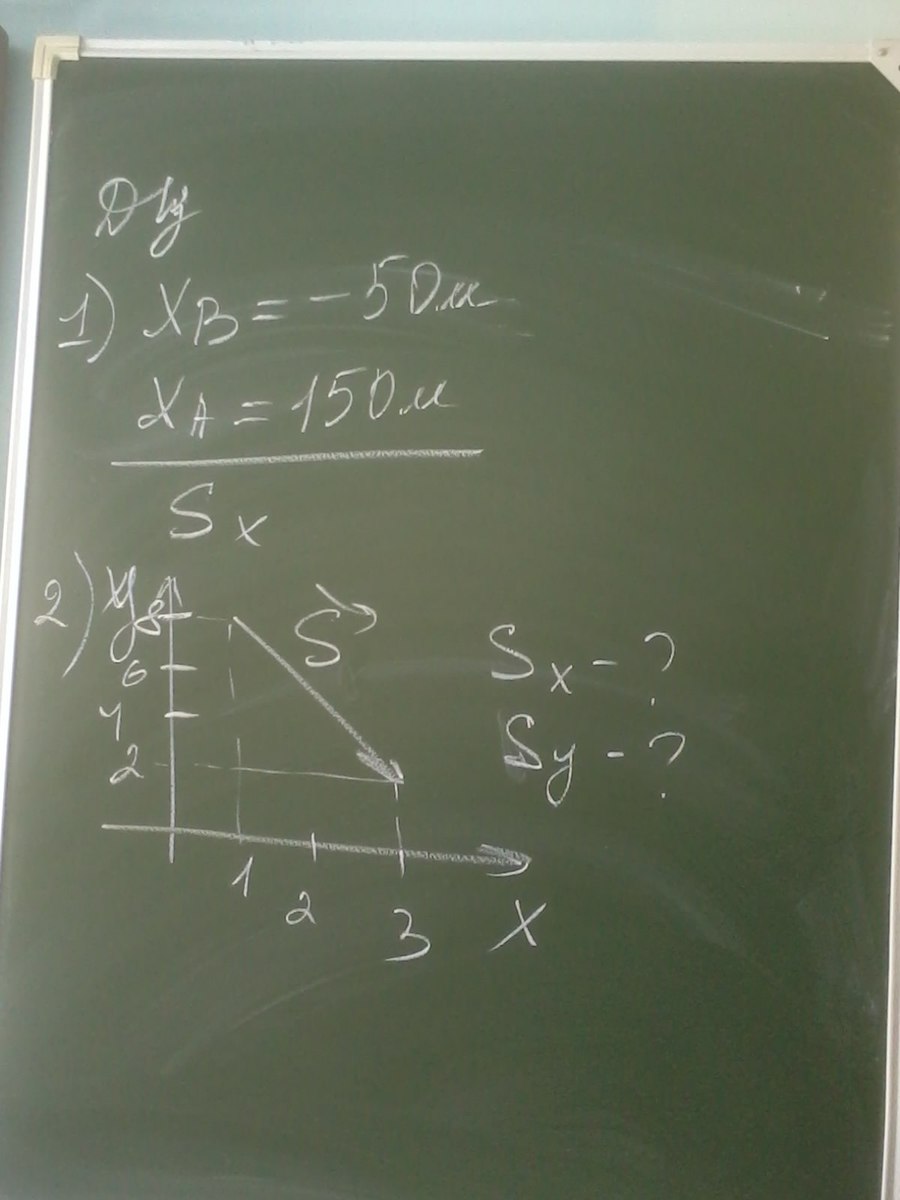 Д/з
1) X_B = -50 м
X_A = 150 м
S_x
2) y
8
6
4
2
1
2
3
X
S⃗
S_x - ?
S_y - ?